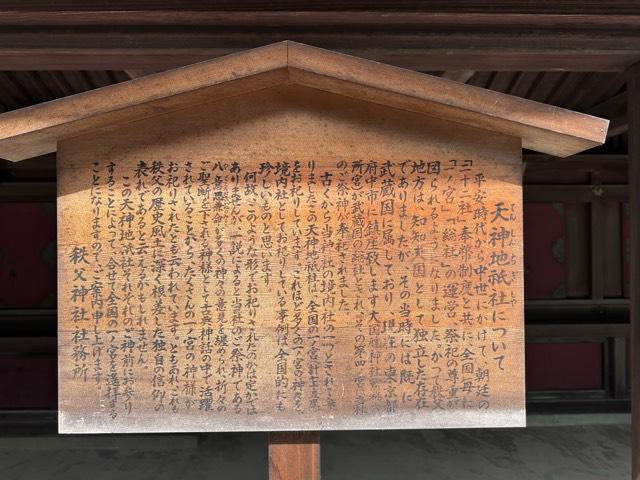 てんじんちぎしゃ
天神地祇社について
平安時代から中世にかけて、朝廷の
「二十二社」奉幣制度と共に、全国毎に
「一ノ宮」・「総社」の運営・祭祀の尊重が
図られるようになりました。かつて秩父
地方は「知知夫国」として独立した存在
でありましたが、その当時には既に
武蔵国に属しており、現在の東京都
府中市に鎮座致します大國魂神社
武蔵国の総社とされ、その第四ノ宮に当社
のご祭神が奉祀されました。
古くから当神社の境内社の一つとされて
りましたこの天神地祇社は、全国の一宮計七十五座
をお祀りしていますが、ほど多くの一ノ宮の神々を、
境内社としてお祀りしている事例は全国的にも
珍しいものと思います。
何故このような形でお祀りされたのかは定かでは
ありませんが、一説によると当社のご祭神である
八意思兼命が多くの神々の意見を纏められ、折々の
ご聖断を下される神様として古典神話の中で活躍
されていることから、たくさんの一ノ宮の神様が
お祀りされたとも云われています。ともあれ、これも
秩父の歴史風土に深く根差した独自の信仰の
表れであると云えるかもしれません。
この天神地祇社それぞれのご神前にお参り
することによって、合せて全国の一ノ宮を遥拝する
ことになりますので、ご案内申し上げます。
秩父神社社務所